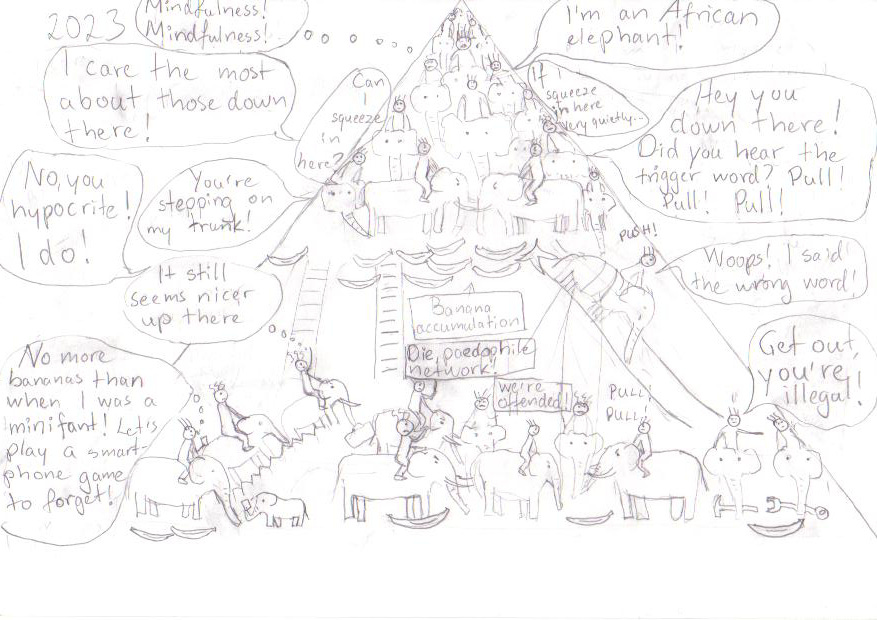 2023
Mindfulness!
Mindfulness!
I'm an African
elephant!
I care the most
about those down
there!
Can
I
squeeze
in
here?
If I
squeeze
in here
very quietly...
Hey you
down there!
Did you hear the
trigger word? Pull!
Pull! Pull!
No, you
hypocrite!
I do!
You're
stepping on
my trunk!
PUSH!
Woops! I said
the wrong word!
It still
seems nicer
up there
Banana
accumulation
Die, paedophile
network!
we're
offended!
PULL!
PULL!
Get out,
you're
illegal!
No more
bananas than
when I was a
minifant! Let's
play a smart-
phone game
to forget!